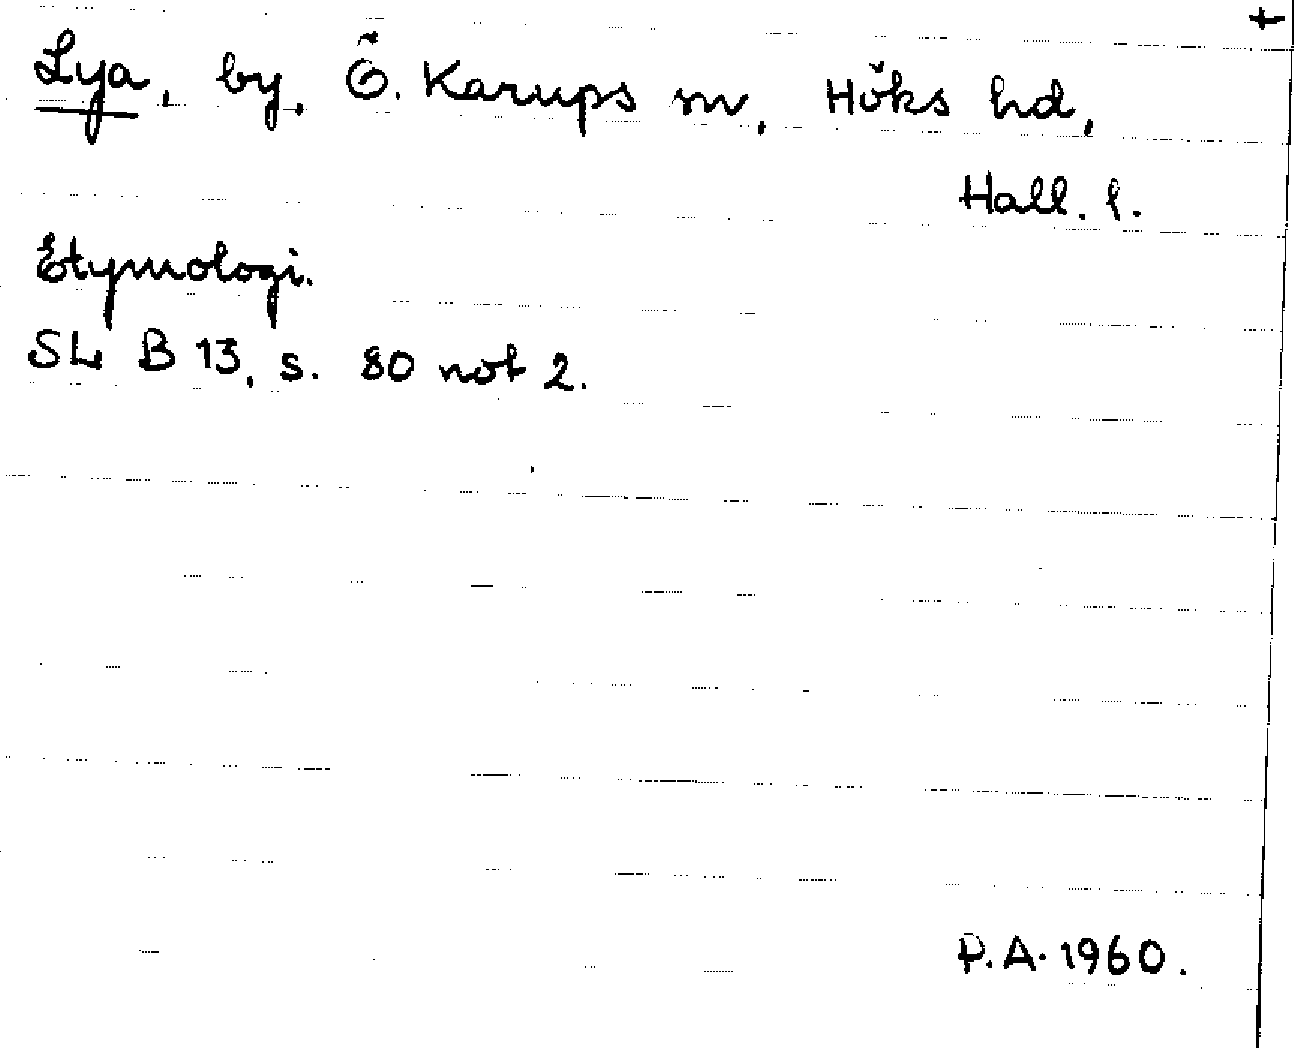 +
Lya, by, Ö. Karups sn, Höks hd,
Hall. l.
Etymologi.
SL B 13, s. 80 not 2.
P.A. 1960.